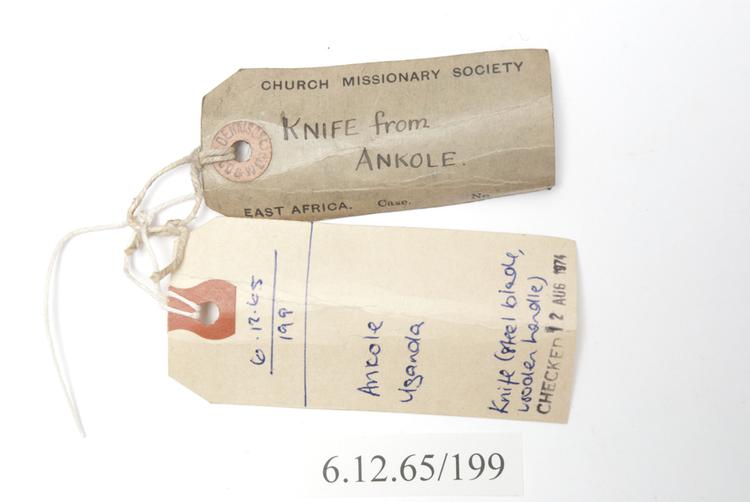 CHURCH MISSIONARY SOCIETY
KNIFE from
ANKOLE.
EAST AFRICA. Case. No.
DENNISON
6.12.65
199
Ankole
Uganda
Knife (steel blade,
wooden handle)
CHECKED 12 AUG 1974
6.12.65/199